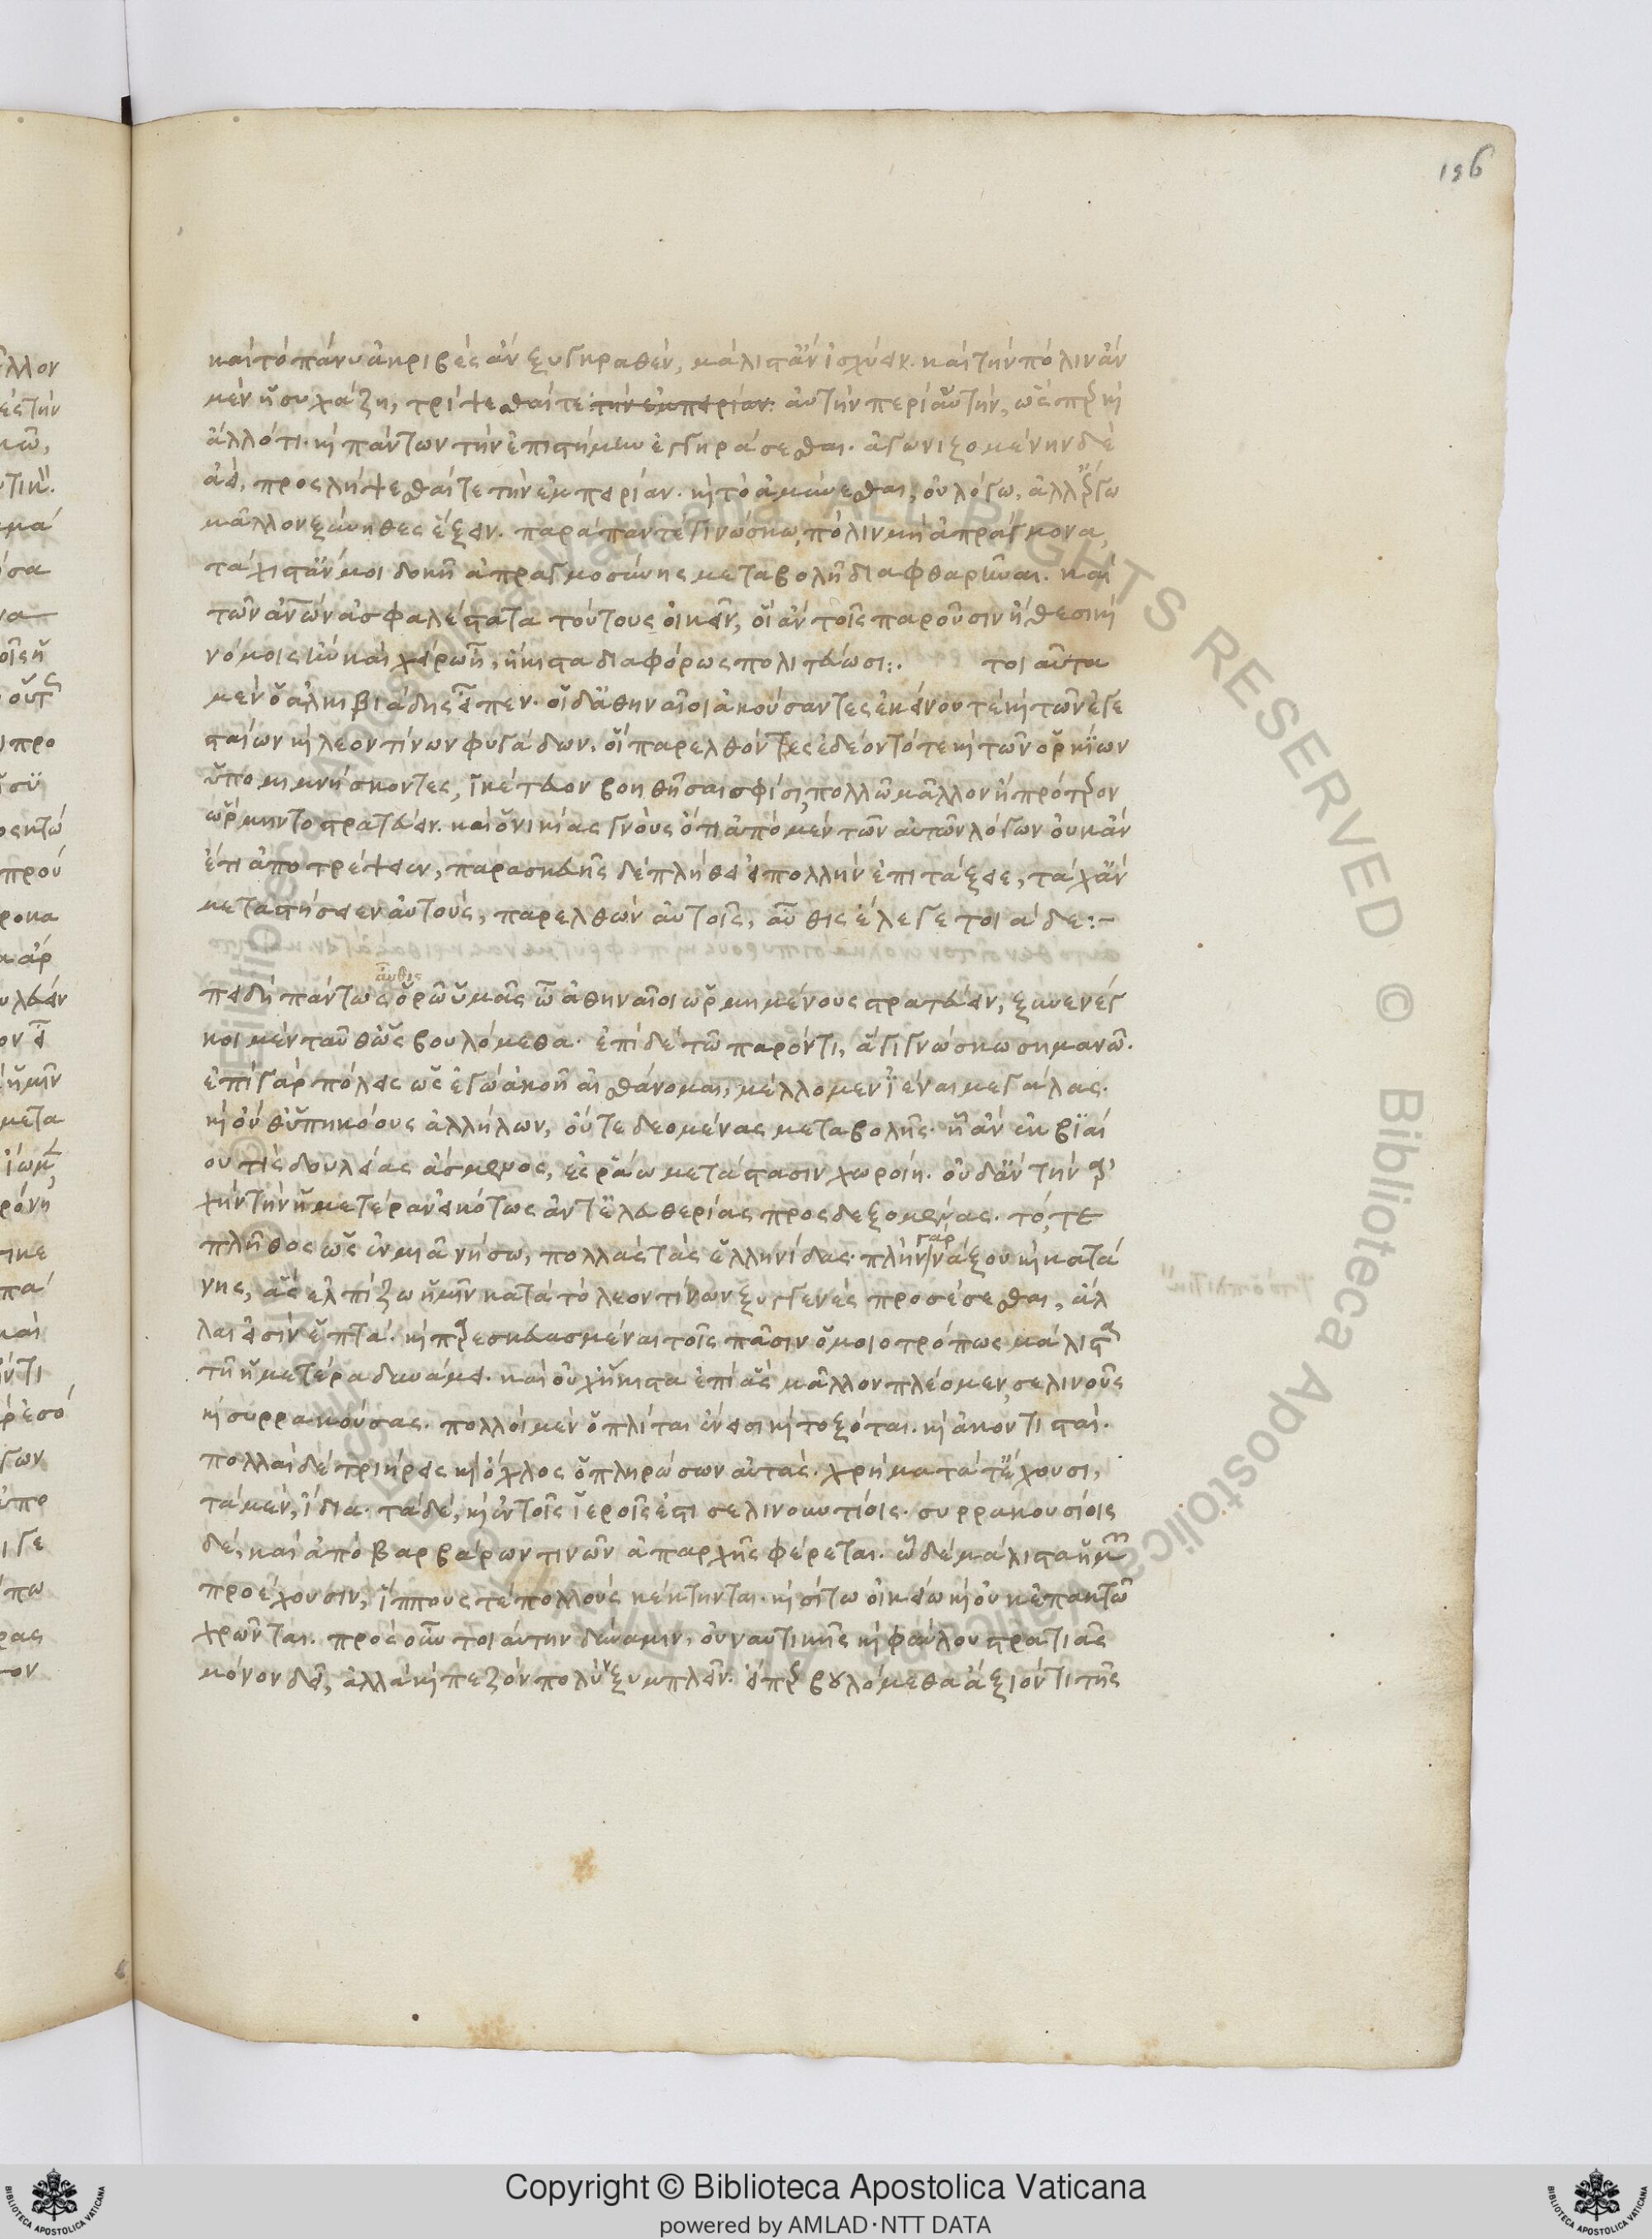 196
καὶ τὸ πάνυ ἀκριβὲς ἂν ξυγκραθὲν, μάλιστ' ἂν ἰσχύειν. καὶ τὴν πόλιν ἂν
μὲν ἡσυχάζῃ, τρίψεσθαί τε τὴν ἐμπειρίαν αὐτὴν περὶ αὑτὴν, ὥσπερ καὶ
ἄλλό τι. καὶ πάντων τὴν ἐπιστήμην ἐγγηράσεσθαι. ἀγωνιζομένην δὲ
ἀεὶ, προσλήψεσθαί τε τὴν ἐμπειρίαν. καὶ τὸ ἀμύνεσθαι, οὐ λόγω, ἀλλ' ἔργω
μᾶλλον ξύνηθες ἕξειν. παράπαν τὲ γινώσκω, πόλιν μὴ ἀπράγμονα,
τάχιστ' ἄν μοι δοκεῖν ἀπραγμοσύνης μεταβολῇ διαφθαρῆναι. καὶ
τῶν ἀνθρώπων ἀσφαλέστατα τούτους οἰκεῖν, οἳ ἂν τοῖς παροῦσιν ἤθεσι καὶ
νόμοις ἢν καὶ χείρω ᾖ, ἥκιστα διαφόρως πολιτεύωσι:. τοιαῦτα
μὲν ὁ ἀλκιβιάδης εἶπεν. οἱ δ' ἀθηναῖοι ἀκούσαντες ἐκείνου τὲ καὶ τῶν ἐγε
σταίων καὶ λεοντίνων φυγάδων, οἳ παρελθόντες ἐδέοντό τε καὶ τῶν ὁρκίων
ὑπομιμνήσκοντες, ἱκέτευον βοηθῆσαι σφίσι, πολλῶ μᾶλλον ἢ πρότερον
ὥρμηντο στρατεύειν. καὶ ὁ νικίας γνοὺς ὅτι ἀπὸ μὲν τῶν αὐτῶν λόγων οὐκ ἂν
ἔτι ἀποτρέψειεν, παρασκευῆς δὲ πλήθει εἰ πολλὴν ἐπιτάξειε, τάχ' ἂν
μεταστήσειεν αὐτοὺς, παρελθὼν αὐτοῖς, αὖθις ἔλεγε τοιάδε:-
αὖθις
πειδὴ πάντως ὁρῶ ὑμᾶς ὦ ἀθηναῖοι ὡρμημένους στρατεύειν, ξυνενέγ
κοι μὲν ταῦθ' ὡς βουλόμεθα. ἐπὶ δὲ τῶ παρόντι, ἃ γιγνώσκω σημανῶ.
ἐπὶ γὰρ πόλεις ὡς ἐγὼ ἀκοῇ αἰσθάνομαι, μέλλομεν ἰέναι μεγάλας.
καὶ οὔθ' ὑπηκόους ἀλλήλων, οὔτε δεομένας μεταβολῆς. ᾗ ἂν ἐκ βιαί
ου τὶς δουλείας ἄσμενος, ἐς ῥάω μετάστασιν χωροίη. οὐδ' ἂν τὴν ἀρ
χὴν τὴν ἡμετέραν εἰκότως ἀντ' ἐλευθερίας προσδεξομένας. τό, τε
πλῆθος ὡς ἐν μιᾷ νήσω, πολλὰς τὰς ἑλληνίδας. πλὴν γὰρ νάξου καὶ κατά
νης, ἃς ἐλπίζω ἡμῖν κατὰ τὸ λεοντίνων ξυγγενὲς προσέσεσθαι, ἄλ
λαι εἰσὶν ἑπτά. καὶ παρεσκευασμέναι τοῖς πᾶσιν ὁμοιοτρόπως μάλιστα
τῇ ἡμετέρα δυνάμει. καὶ οὐχ ἥκιστα ἐπὶ ἃς μᾶλλον πλέομεν, σελινοῦς
καὶ συρρακούσας. πολλοὶ μὲν ὁπλίται ἔνεισι καὶ τοξόται. καὶ ἀκοντισταί.
πολλαὶ δὲ τριήρεις καὶ ὄχλος ὁ πληρώσων αὐτάς. χρήματά τ' ἔχουσι,
τὰ μὲν, ἴδια. τὰ δὲ, κἀν τοῖς ἱεροῖς ἐστι σελινουντίοις. συρρακουσίοις
δὲ, καὶ ἀπὸ βαρβάρων τινῶν ἀπαρχῆς φέρεται. ᾧ δὲ μάλιστα ἡμῶν
προέχουσιν, ἵππους τὲ πολλοὺς κέκτηνται. καὶ σίτω οἰκείω καὶ οὐκ ἐπακτῶ
χρῶνται. πρὸς οὖν τοιαύτην δύναμιν, οὐ ναυτικῆς καὶ φαύλου στρατιᾶς
μόνον δεῖ, ἀλλὰ καὶ πεζὸν πολὺν ξυμπλεῖν. εἴπερ βουλόμεθα ἄξιόν τι τῆς
Copyright © Biblioteca Apostolica Vaticana
powered by AMLAD·NTT DATA